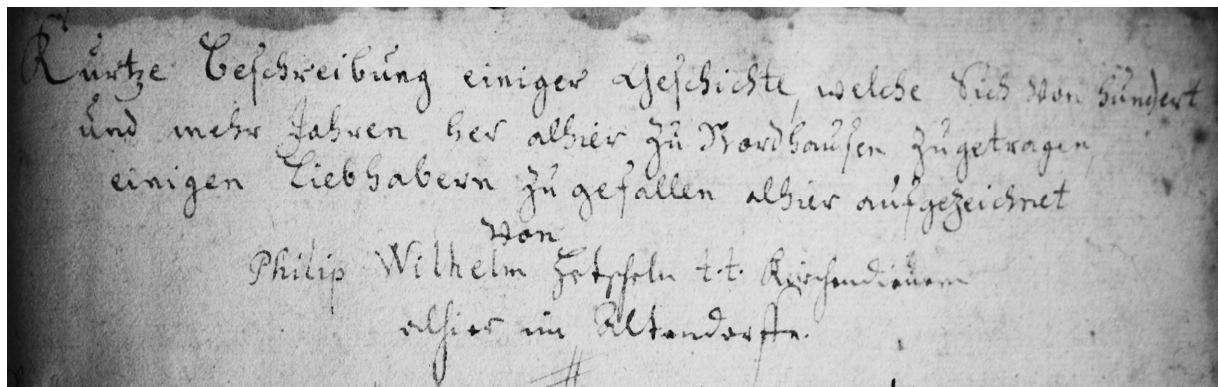 Kurtze Beschreibung einiger Geschichte, welche Sich von hundert
und mehr Jahren her alhier zu Nordhausen zugetragen,
einigen Liebhabern zu gefallen alhier aufgezeichnet
von
Philip Wilhelm t. t. Kirchendienern
alhier im Altendorffe.